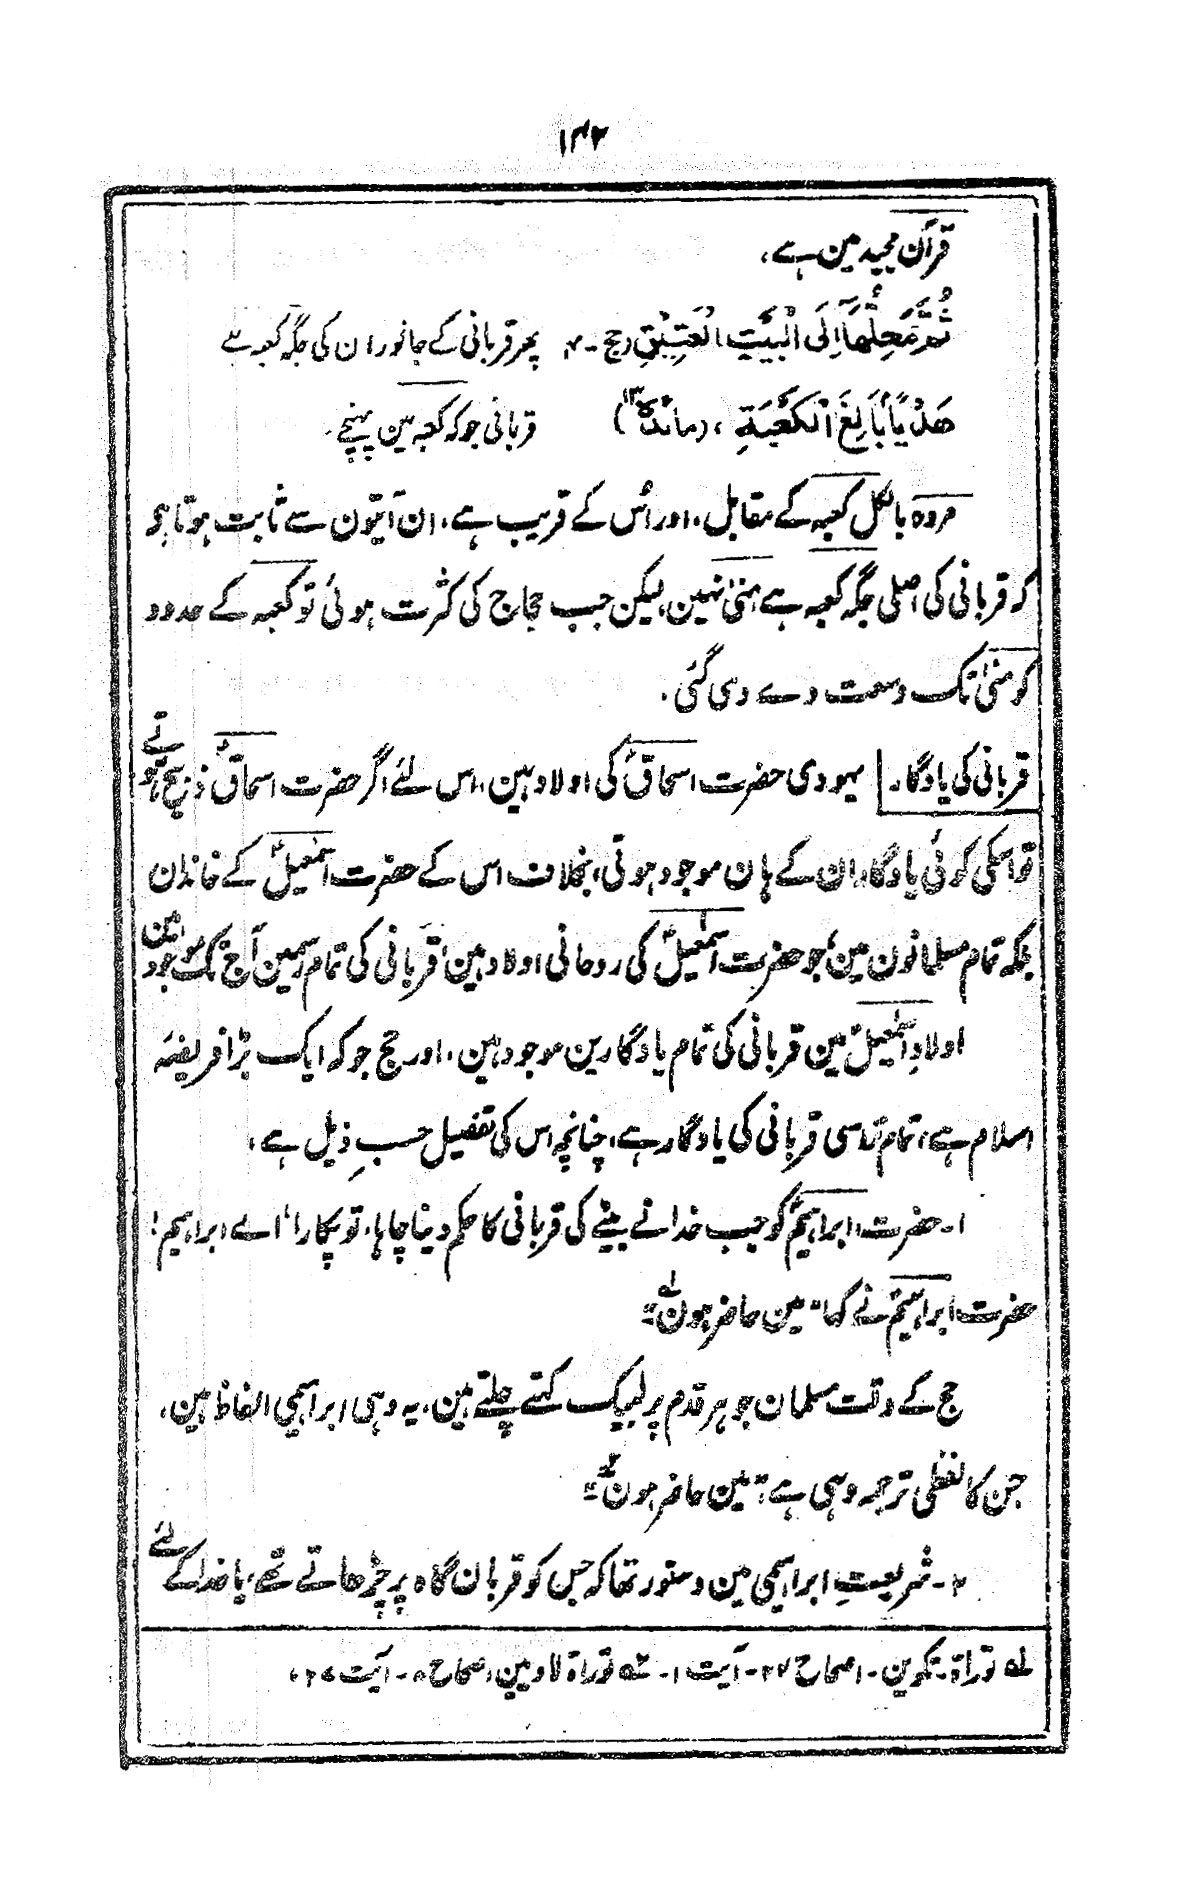 ۱۴۲
قرآن مجید مین ہے،
ثُمَّ مَحِلُّهَآ اِلَى الْبَيْتِ الْعَتِيْقِ (حج - ۴) پھر قربانی کے جانوران کی جگہ کعبہ ہے
هَدْيًا بَالِغَ الْكَعْبَةِ، (مائدہ ۱۳) قربانی جو کہ کعبہ مین پہنچے.
مروہ بالکل کعبہ کے مقابل، اور اُس کے قریب ہے، ان آیتون سے ثابت ہوتا ہو
کہ قربانی کی اصلی جگہ کعبہ ہے، منیٰ نہین، لیکن جب حجاج کی کثرت ہوئی تو کعبہ کے حدود
کو منیٰ تک وسعت دے دی گئی.
قربانی کی یادگار. یہودی حضرت اسحاقؑ کی اولاد ہین، اس لئے اگر حضرت اسحاقؑ ذبیح ہوتے
تو اسکی کوئی یادگار ان کے ہان موجود ہوتی، بخلاف اس کے حضرت اسمٰعیلؑ کے خاندان
بلکہ تمام مسلمانون مین، جو حضرت اسمٰعیلؑ کی روحانی اولاد ہین، قربانی کی تمام رسمین آج تک موجود ہین
اولادِ اسمٰعیلؑ مین قربانی کی تمام یادگارین موجود ہین، اور حج جو کہ ایک بڑا فریضۂ
اسلام ہے، تمام تر اسی قربانی کی یادگار ہے، چنانچہ اس کی تفصیل حسبِ ذیل ہے،
۱- حضرت ابراہیمؑ کو جب خدا نے بیٹے کی قربانی کا حکم دینا چاہا، تو پکارا، اے ابراہیم!
حضرت ابراہیمؑ نے کہا "مین حاضر ہون"۱؎
حج کے وقت مسلمان جو ہر قدم پر لبیک کہتے چلتے ہین، یہ وہی ابراہیمی الفاظ ہین،
جن کا لفظی ترجمہ وہی ہے: "مین حاضر ہون"
۲- شریعتِ ابراہیمی مین دستور تھا کہ جس کو قربان گاہ پر چڑھاتے تھے، یا خدا کے لئے
۱؎ توراۃ - تکوین - اصحاح ۲۲ - آیت ۱- ۲؎ توراۃ لاوین، اصحاح ۸ - آیت ۲۷،